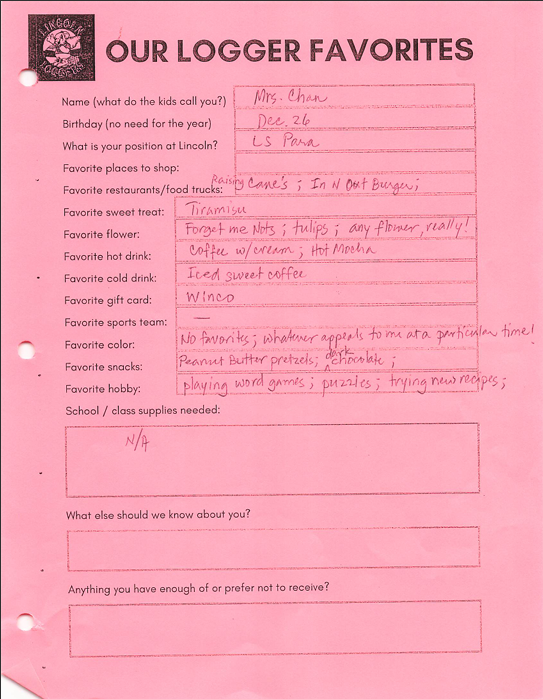 LINCOLN
LOGGERS
OUR LOGGER FAVORITES
Name (what do the kids call you?) Mrs. Chan
Birthday (no need for the year) Dec. 26
What is your position at Lincoln? LS Para
Favorite places to shop:
Favorite restaurants/food trucks: Raising Cane's ; In N Out Burger;
Favorite sweet treat: Tiramisu
Favorite flower: Forget me Nots ; tulips ; any flower, really!
Favorite hot drink: Coffee w/cream ; Hot Mocha
Favorite cold drink: Iced sweet coffee
Favorite gift card: Winco
Favorite sports team: —
Favorite color: No favorites ; whatever appeals to me at a particular time!
Favorite snacks: Peanut Butter pretzels; dark chocolate ;
Favorite hobby: playing word games ; puzzles ; trying new recipes ;
School / class supplies needed:
N/A
What else should we know about you?
Anything you have enough of or prefer not to receive?